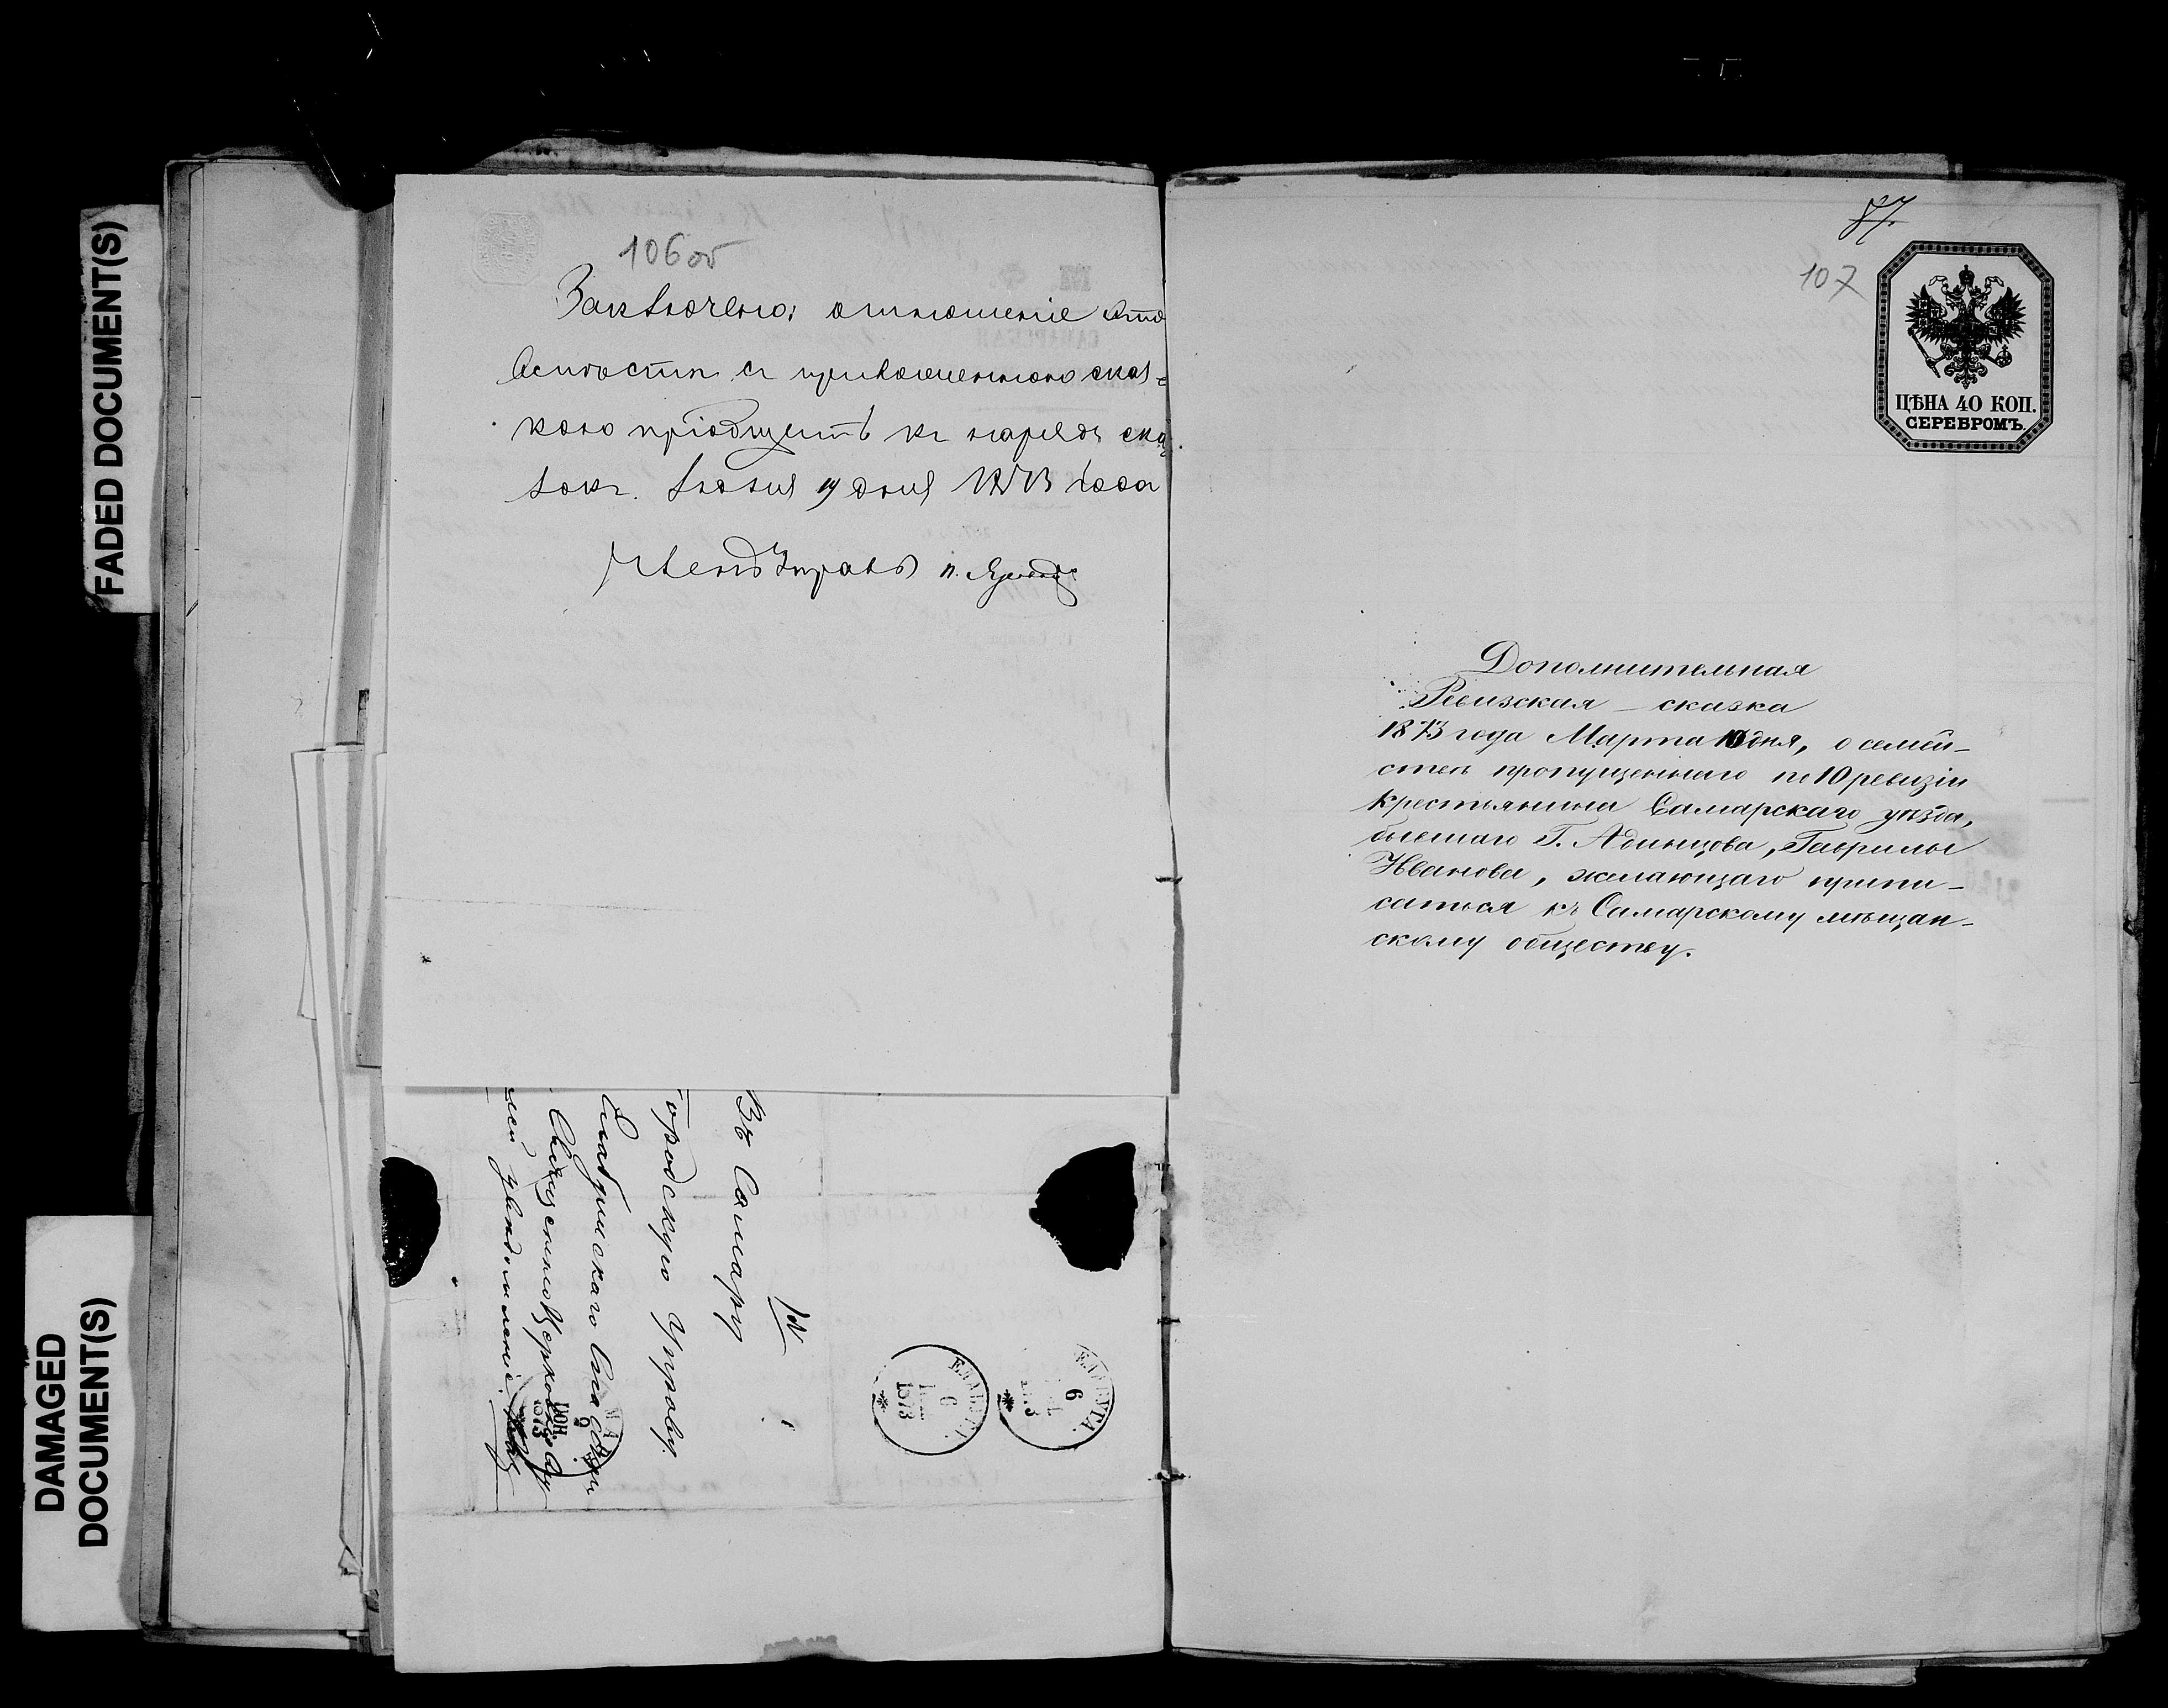 FADED DOCUMENT(S)
DAMAGED
DOCUMENT(S)
106об
Заключено: отношеніе это
съ приложенною сказ-
кою пріобщить къ наряду
Іюня 19 дня 1873 года
Членъ Управы
Въ Самару
Городскую Управу.
Елабужскаго
ЕЛАБУГА.
6
1873
ЕЛАБУГА.
6
87.
107
ЦѢНА 40 КОП.
СЕРЕБРОМЪ.
Дополнительная
Ревизская – сказка
1873 года Марта 10 дня, о семей-
ствѣ пропущеннаго по 10 ревизіи
крестьянина Самарскаго уѣзда,
бывшаго Г. Адинцова, Гаврилы
Иванова, желающаго припи-
саться къ Самарскому мѣщан-
скому обществу.